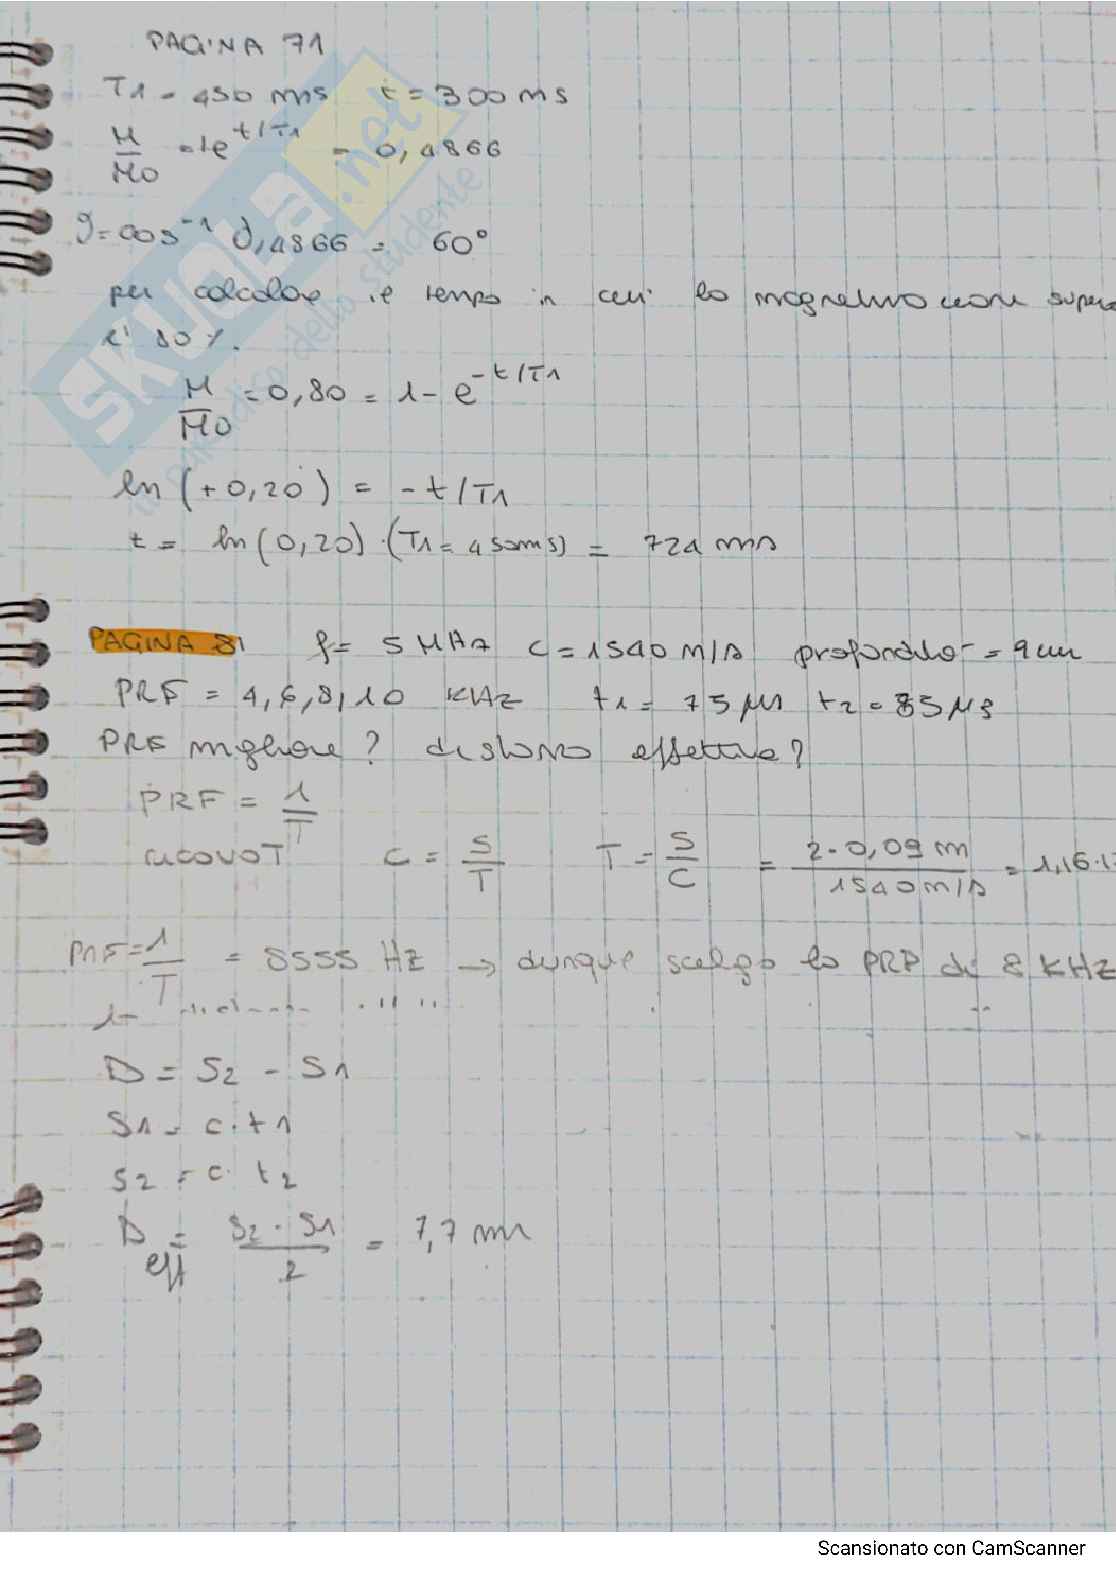 PAGINA 71
T1 = 450 ms t = 300 ms
M/M0 = 1e^t/T1 = 0,4866
θ = cos⁻¹ 0,4866 = 60°
per calcolare il tempo in cui la magnetizzazione supera
l' 80 %.
M/M0 = 0,80 = 1 - e^-t/T1
ln (+0,20) = - t/T1
t = ln (0,20) · (T1 = 450ms) = 724 ms
PAGINA 81 f = 5 MHz c = 1540 m/s profondità = 9 cm
PRF = 4, 6, 8, 10 KHz t1 = 75 μs t2 = 85 μs
PRF migliore? distanza effettiva?
PRF = 1/T
ricavo T C = S/T T = S/C = 2·0,09 m / 1540 m/s = 1,16·1
PRF = 1/T = 8555 Hz → dunque scelgo la PRF di 8 KHz
D = S2 - S1
S1 = c·t1
S2 = c·t2
D eff = S2 - S1 / 2 = 7,7 mm
SKUOLA.net
il paradiso dello studente
Scansionato con CamScanner